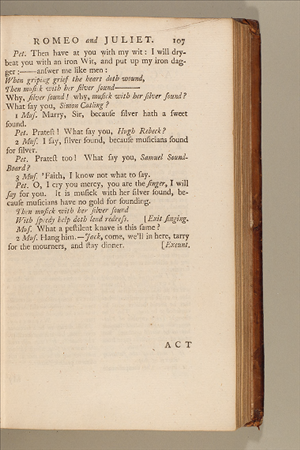 ROMEO and JULIET. 107
Pet. Then have at you with my wit: I will dry-
beat you with an iron Wit, and put up my iron dag-
ger:——anſwer me like men:
When griping grief the heart doth wound,
Then muſick with her ſilver ſound———
Why, ſilver ſound! why, muſick with her ſilver ſound?
What ſay you, Simon Catling?
1 Muſ. Marry, Sir, becauſe ſilver hath a ſweet
ſound.
Pet. Prateſt! What ſay you, Hugh Rebeck?
2 Muſ. I ſay, ſilver ſound, becauſe muſicians ſound
for ſilver.
Pet. Prateſt too! What ſay you, Samuel Sound-
Board?
3 Muſ. 'Faith, I know not what to ſay.
Pet. O, I cry you mercy, you are the ſinger, I will
ſay for you. It is muſick with her ſilver ſound, be-
cauſe muſicians have no gold for ſounding.
Then muſick with her ſilver ſound
With ſpeedy help doth lend redreſs. [Exit ſinging.
Muſ. What a peſtilent knave is this ſame?
2 Muſ. Hang him.—Jack, come, we'll in here, tarry
for the mourners, and ſtay dinner. [Exeunt.
ACT